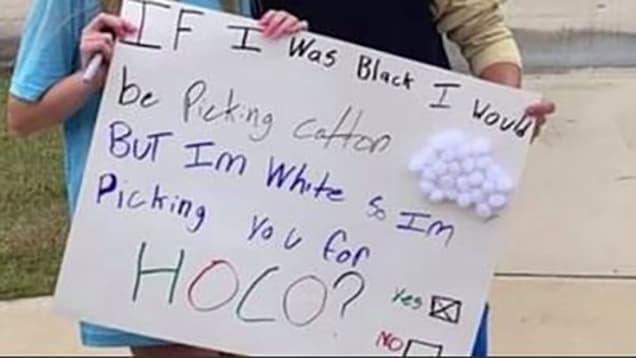 IF I Was Black I Would
be Picking cotton
BUT Im White So Im
Picking You for
HOCO?
Yes
NO